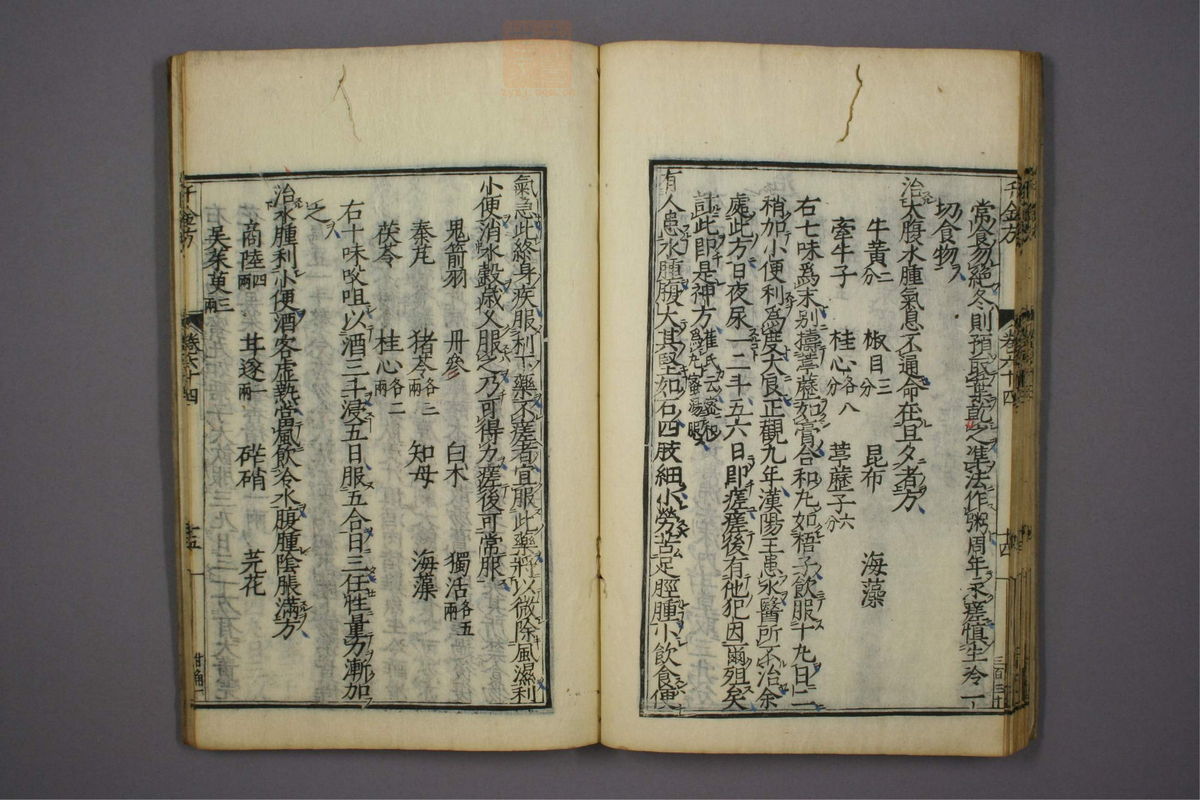 常食勿絶冬則預取葉乾之準法作粥周年永瘥愼生冷一
切食物
治大腹水腫氣息不通命在旦夕者方
牛黄二分 椒目三分 昆布 海藻
牽牛子 桂心各八分 葶藶子六分
右七味爲末别擣葶藶如膏合和丸如梧子飲服十丸日二
稍加小便利爲度大良正觀九年漢陽王患水醫所不治余
處此方日夜尿一二斗五六日即瘥瘥後有他犯因爾殂矣
計此即是神方崔氏云蜜和爲丸蜜湯服
有人患水腫腹大其堅如石四肢細小勞苦足脛腫小飲食便
千金方
卷六十四
十四
氣急此終身疾服利下藥不瘥者宜服此藥將以微除風濕利
小便消水穀歳久服之乃可得力瘥後可常服
鬼箭羽 丹參 白朮 獨活各五兩
秦艽 猪苓各三兩 知母 海藻
茯苓 桂心各二兩
右十味㕮咀以酒三斗浸五日服五合日三任性量力漸加
之
治水腫利小便酒客虛熱當風飲冷水腹腫陰脹滿方
商陸四兩 甘遂一兩 硭硝 芫花
吳茱萸三兩
千金方
卷六十四
十五